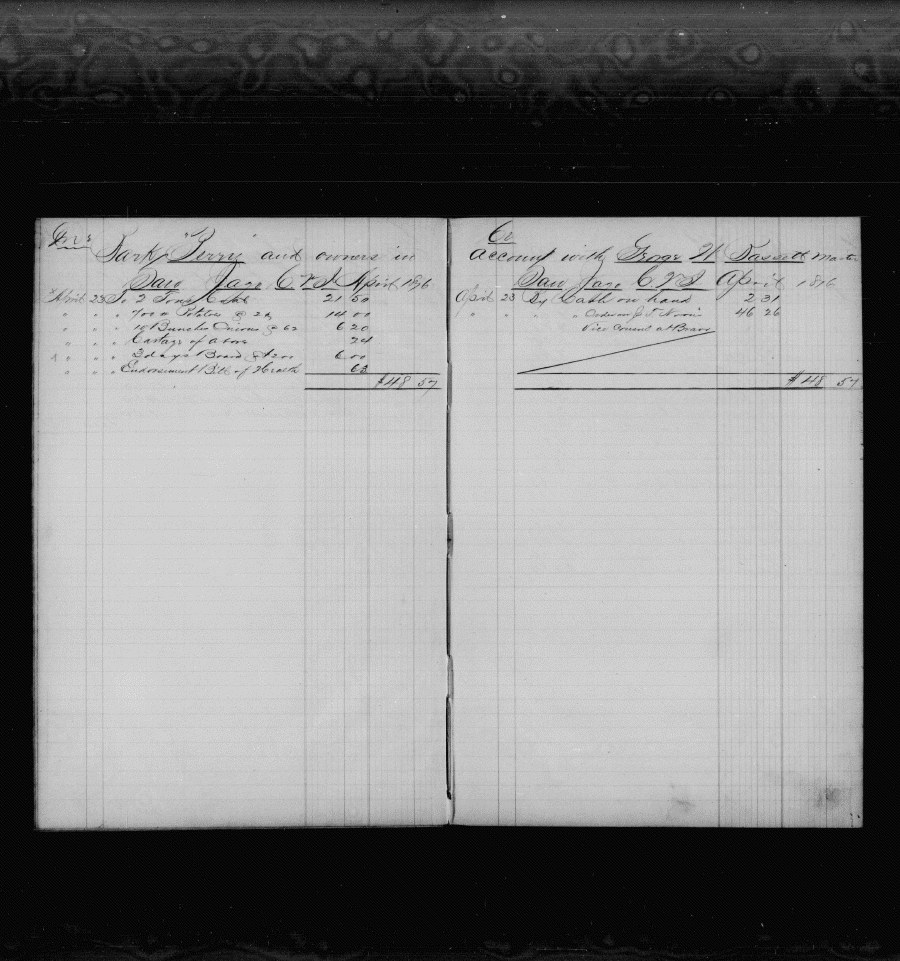 Drs
Bark "Perry" and owners in
San Jago C.V.I. April 1896
April 23 To 2 Tons Coal 21 50
" " " 700 # Potatoes @ 2¢ 14 00
" " " 10 Bunches Onions @ 62 6 20
" " " Cartage of above 24
" " " 3 days Board @ 2.00 6 00
" " " Endorsement Bill of Health 63
$48 57
Cr
account with George W. Bassett master
San Jago C.V.I. April 1896
April 23 By Cash on hand 2 31
" " " Order on J. J. Nunis 46 26
Vice Consul at Brava
$48 57